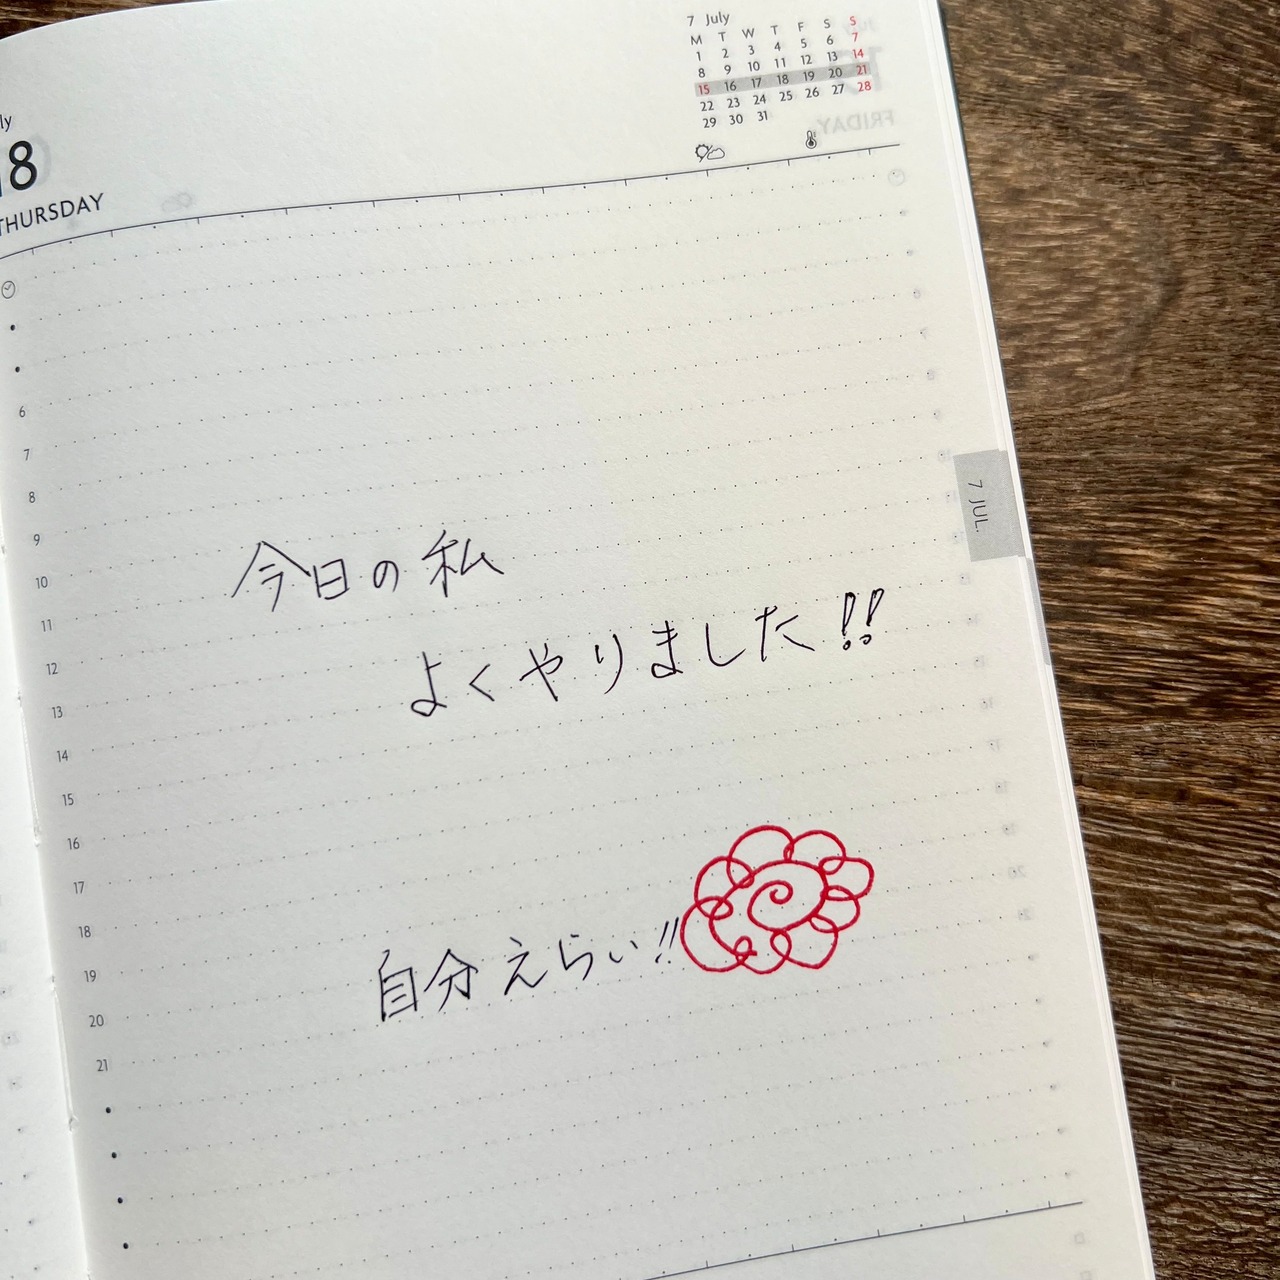 7 July
M T W T F S S
1 2 3 4 5 6 7
8 9 10 11 12 13 14
15 16 17 18 19 20 21
22 23 24 25 26 27 28
29 30 31
18
THURSDAY
6
7
8
9
10
11
12
13
14
15
16
17
18
19
20
21
今日の私
よくやりました!!
自分えらい!!
7 JUL.